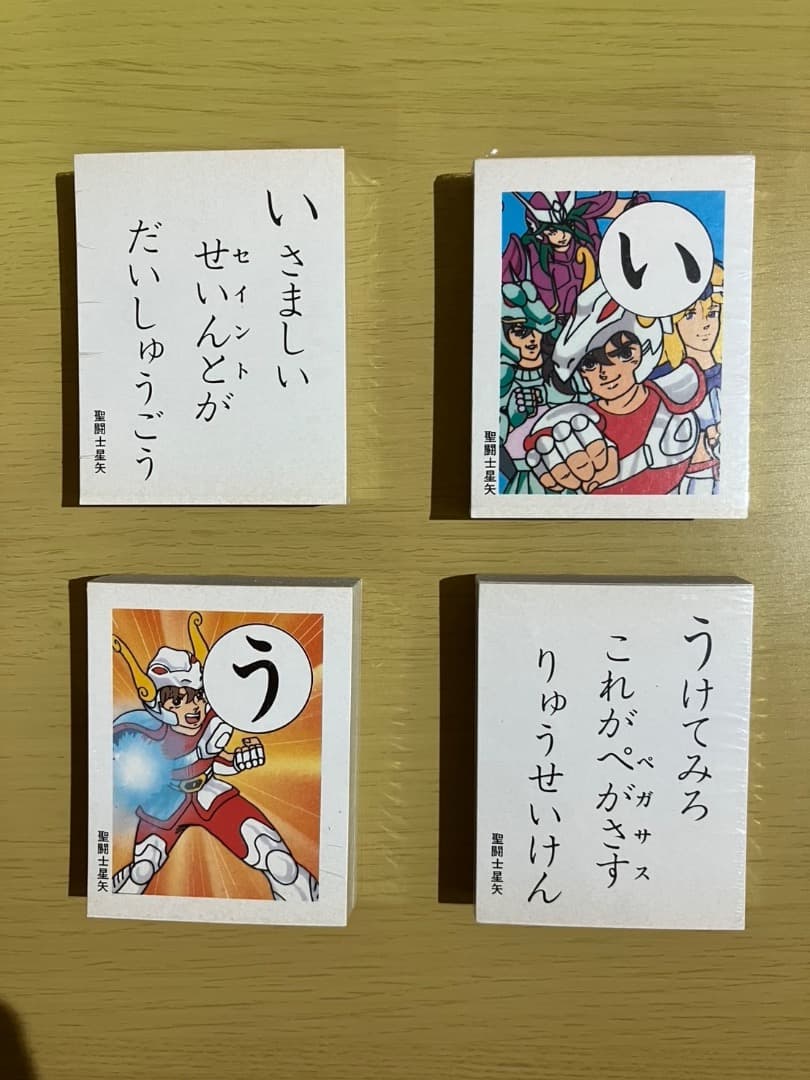 いさましい
せいんとが
セイント
だいしゅうごう
聖闘士星矢
い
聖闘士星矢
う
聖闘士星矢
うけてみろ
これがぺがさす
ペガサス
りゅうせいけん
聖闘士星矢